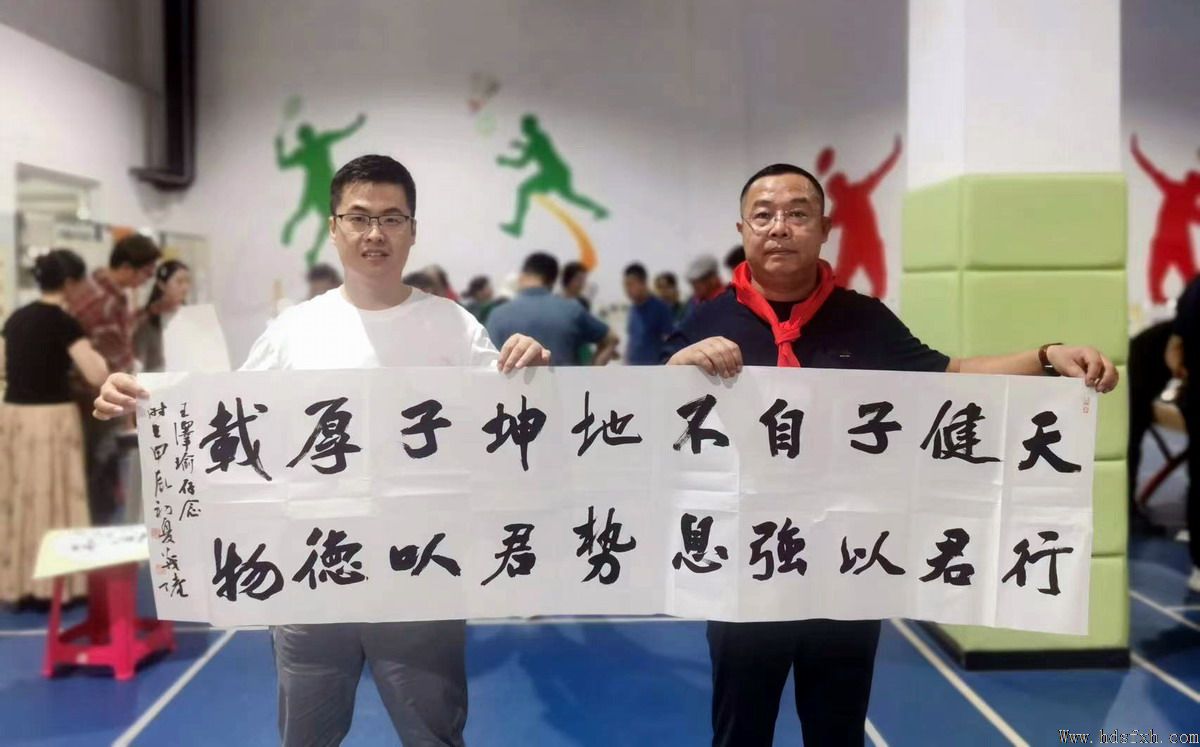 天行
健君
子以
自強
不息
地势
坤君
子以
厚德
載物
王澤瑜存念
甲辰初夏
Www.hdsfxh.com